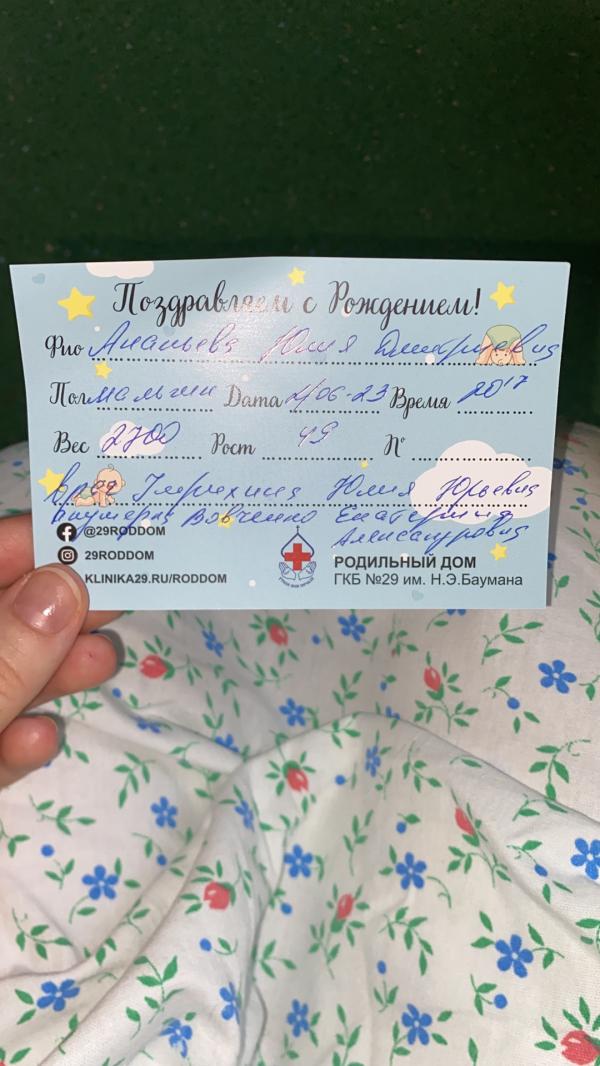 Поздравляем с Рождением!
Фио Ананьева Юлия Дмитриевна
Пол мальчик Дата 21/06-23 Время 20¹⁷
Вес 2700 Рост 49 №
Врач Юлия Юрьевна
Акушерка Вовченко Екатерина
Александровна
@29RODDOM
29RODDOM
KLINIKA29.RU/RODDOM
РОДИЛЬНЫЙ ДОМ
ГКБ №29 им. Н.Э.Баумана